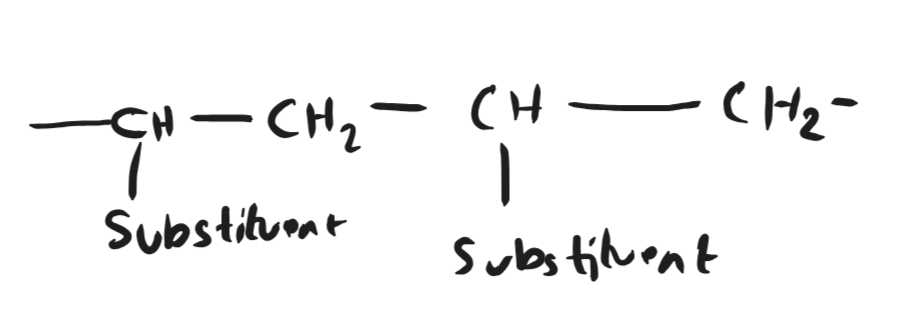 — CH — CH₂ — CH — CH₂ -
Substituent
Substituent